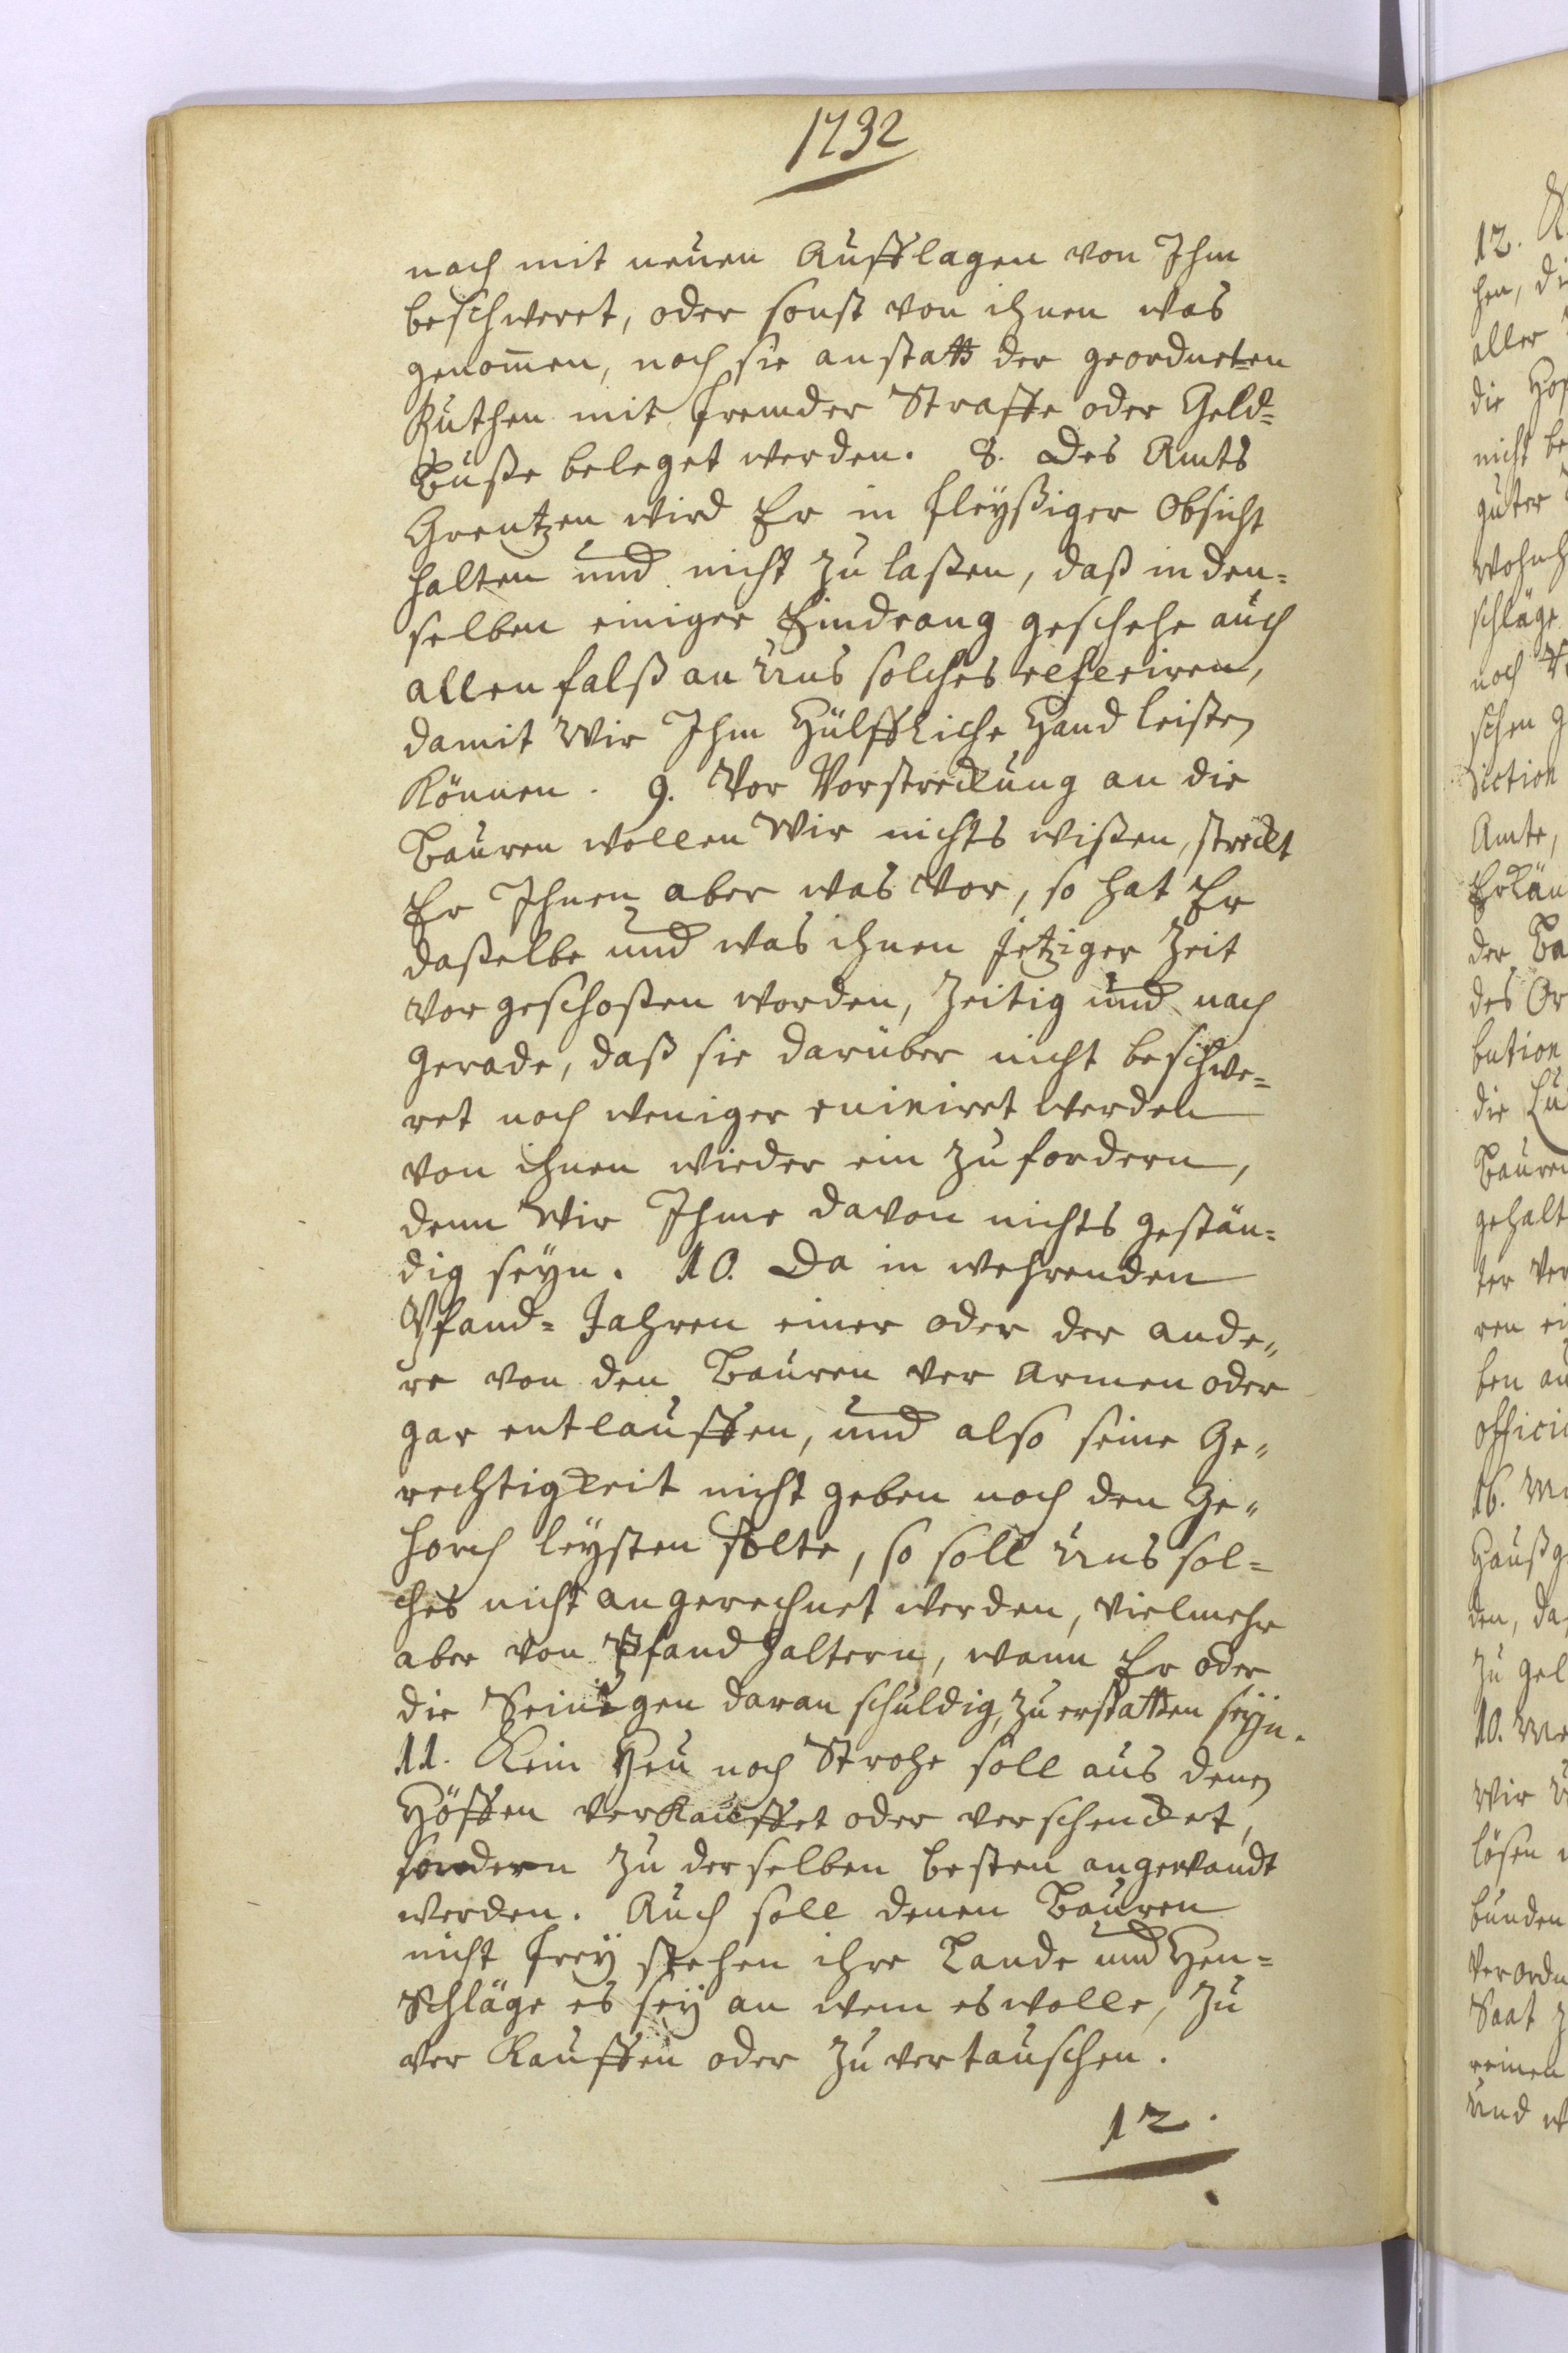 1732
noch mit neuen Aufflagen von Ihm
beschweret, oder sonst von ihnen was
genom̄en, noch sie anstatt der geordneten
Ruthen mit fremder Straffe oder Geld=
Buße beleget werden. 8. Des Amts
Grentzen wird Er in fleyßiger Obsicht
halten und nicht zu laßen, daß in den=
selben einiger Eindrang geschehe auch
allenfalß an Uns solches referiren,
damit Wir Ihm Hülffliche Hand leisten
Können. 9. Vor Vorstreckung an die
Bauren wollen Wir nichts wißen, streckt
Er Ihnen aber was vor, so hat Er
daßelbe und was ihnen jetziger Zeit
vorgeschoßen worden, Zeitig und nach
gerade, daß sie darüber nicht beschwe=
ret noch weniger ruiniret werden
von ihnen wieder ein zu fordern,
denn Wir Ihme davon nichts gestän=
dig seyn. 10. Da in wehrenden
Pfand=Jahren einer oder der ande=
re von den Bauren ver Armen oder
gar entlauffen, und also seine Ge=
rechtigkeit nicht geben noch den Ge=
horch leysten solte, so soll Uns sol=
ches nicht angerechnet werden, vielmehr
aber von Pfandhaltern, wann Er oder
die Seinigen daran schuldig, zu erstatten seyn.
11. Kein Heu noch Strohe soll aus denen
Höffen verkauffet oder verschencket,
sondern zu derselben besten angewandt
werden. Auch soll denen Bauren
nicht frey stehen ihre Lande und Heu=
Schläge es sey an wem es wolle, zu
ver Kauffen oder zu vertauschen.
12.
12.
hen, di
aller
die Hof
nicht be
guter
wohnh
schläge
noch
schen g
diction
Amte,
Erkän
der Ba
des Or
bution
die
Bauren
gehalt
ter ver
ren ei
ben au
officii
16.
Haußg
den, da
zu gel
10. We
Wir
lösen
bunden
verordn
Saat z
reinen
und w